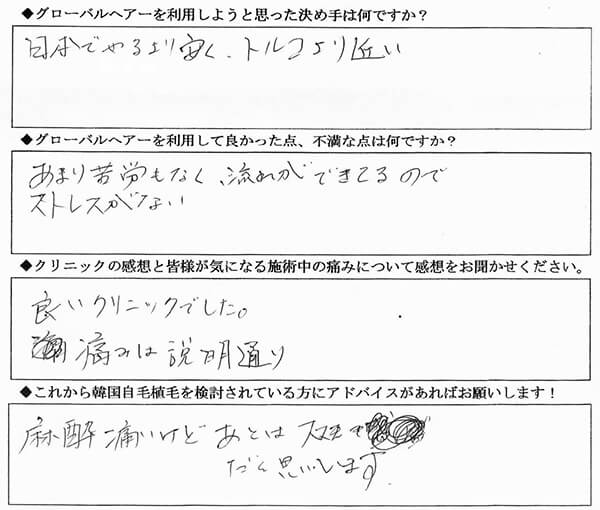 ◆グローバルヘアーを利用しようと思った決め手は何ですか?
日本でやるより安く、トルコより近い
◆グローバルヘアーを利用して良かった点、不満な点は何ですか?
あまり苦労もなく、流れができてるので
ストレスがない
◆クリニックの感想と皆様が気になる施術中の痛みについて感想をお聞かせください。
良いクリニックでした。
痛みは説明通り
◆これから韓国自毛植毛を検討されている方にアドバイスがあればお願いします!
麻酔痛いけどあとは
だと思いします